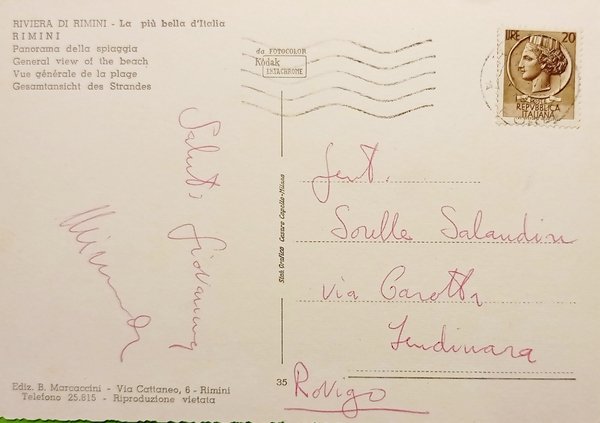 RIVIERA DI RIMINI - La più bella d'Italia
RIMINI
Panorama della spiaggia
General view of the beach
Vue générale de la plage
Gesamtansicht des Strandes
da FOTOCOLOR
Kodak
EKTACHROME
LIRE 20
POSTE
REPVBBLICA
ITALIANA
Saluti
Giovanna
Stab. Grafico Cesare Capello-Milano
Gent.
Sorelle Salandin
via Carotta
Lendinara
Rovigo
Ediz. B. Marcaccini - Via Cattaneo, 6 - Rimini
Telefono 25.815 - Riproduzione vietata
35